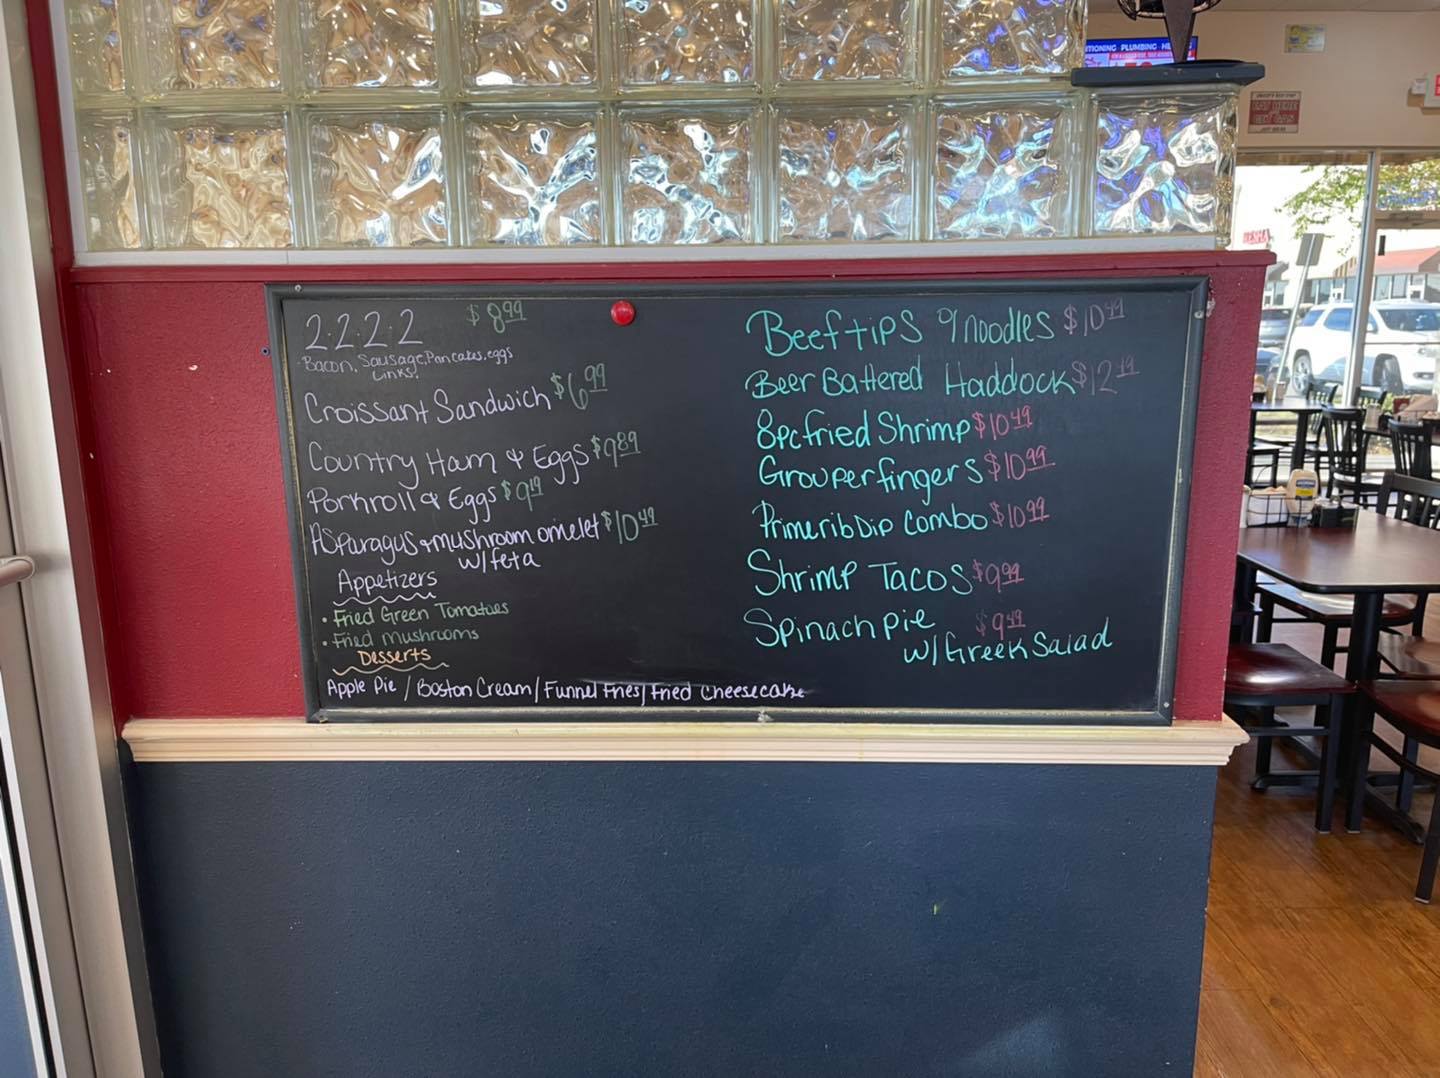 2.2.2.2 $8.99
Bacon, Sausage, Pancakes, eggs
Links.
Croissant Sandwich $6.99
Country Ham & Eggs $9.89
Porkroll & Eggs $9.19
Asparagus & mushroom omelet $10.49
w/feta
Appetizers
• Fried Green Tomatoes
• Fried mushrooms
Desserts
Apple Pie / Boston Cream / Funnel Fries / Fried Cheesecake
Beef tips noodles $10.49
Beer Battered Haddock $12.49
8pc fried Shrimp $10.49
Grouper fingers $10.99
Prime rib Dip Combo $10.99
Shrimp Tacos $9.99
Spinach pie $9.49
w/ Greek Salad
ITIONING PLUMBING HE
EAT HERE
GET GAS